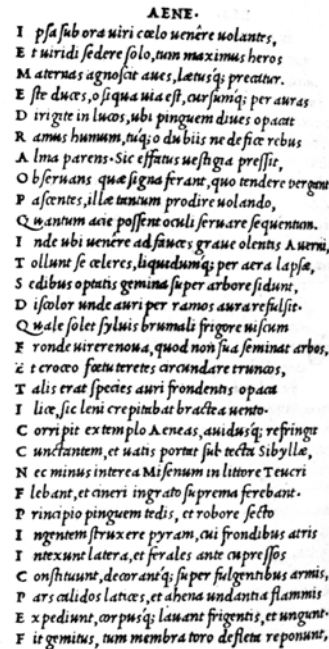 AENE.
I pſa ſub ora uiri cœlo uenêre uolantes,
E t uiridi ſedere ſolo, tum maximus heros
M aternas agnoſcit aues, lætusq; precatur.
E ſte duces, o ſiqua uia eſt, curſumq; per auras
D irigite in lucos, ubi pinguem diues opacat
R amus humum, tuq; o dubiis ne defice rebus
A lma parens. Sic effatus ueſtigia preſſit,
O bſeruans quæ ſigna ferant, quo tendere pergant
P aſcentes, illæ tantum prodire uolando,
Q uantum acie poſſent oculi ſeruare ſequentum.
I nde ubi uenêre ad fauces graue olentis Auerni,
T ollunt ſe celeres, liquidumq; per aera lapſæ,
S edibus optatis gemina ſuper arbore ſidunt,
D iſcolor unde auri per ramos aura refulſit.
Q uale ſolet ſyluis brumali frigore uiſcum
F ronde uirere noua, quod non ſua ſeminat arbos,
E t croceo fœtu teretes circundare truncos,
T alis erat ſpecies auri frondentis opaca
I lice, ſic leni crepitabat bractea uento.
C orripit extemplo Aeneas, auidusq; refringit
C unctantem, et uatis portat ſub tecta Sibyllæ,
N ec minus interea Miſenum in littore Teucri
F lebant, et cineri ingrato ſuprema ferebant.
P rincipio pinguem tedis, et robore ſecto
I ngentem ſtruxere pyram, cui frondibus atris
I ntexunt latera, et ferales ante cupreſſos
C onſtituunt, decorantq; ſuper fulgentibus armis,
P ars calidos latices, et ahena undantia flammis
E xpediunt, corpusq; lauant frigentis, et ungunt.
F it gemitus, tum membra toro defleta reponunt,